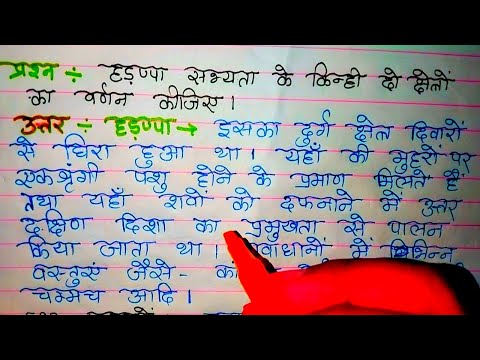 प्रश्न ÷ हड़प्पा सभ्यता के किन्ही दो क्षेत्रों
का वर्णन कीजिए।
उत्तर ÷ हड़प्पा → इसका दुर्ग क्षेत्र दिवारों
से घिरा हुआ था। यहाँ की मुहरों पर
एकश्रृंगी पशु होने के प्रमाण मिलते हैं
तथा यहाँ शवों को दफनाने में उत्तर
दक्षिण दिशा का प्रमुखता से पालन
किया जाता था। में विभिन्न
वस्तुएं जैसे-
चम्मच आदि।